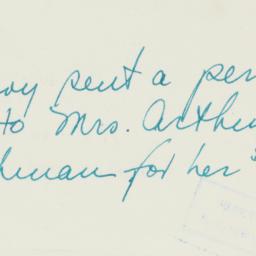 vy sent a per
to Mrs. Arthu
hman for her "